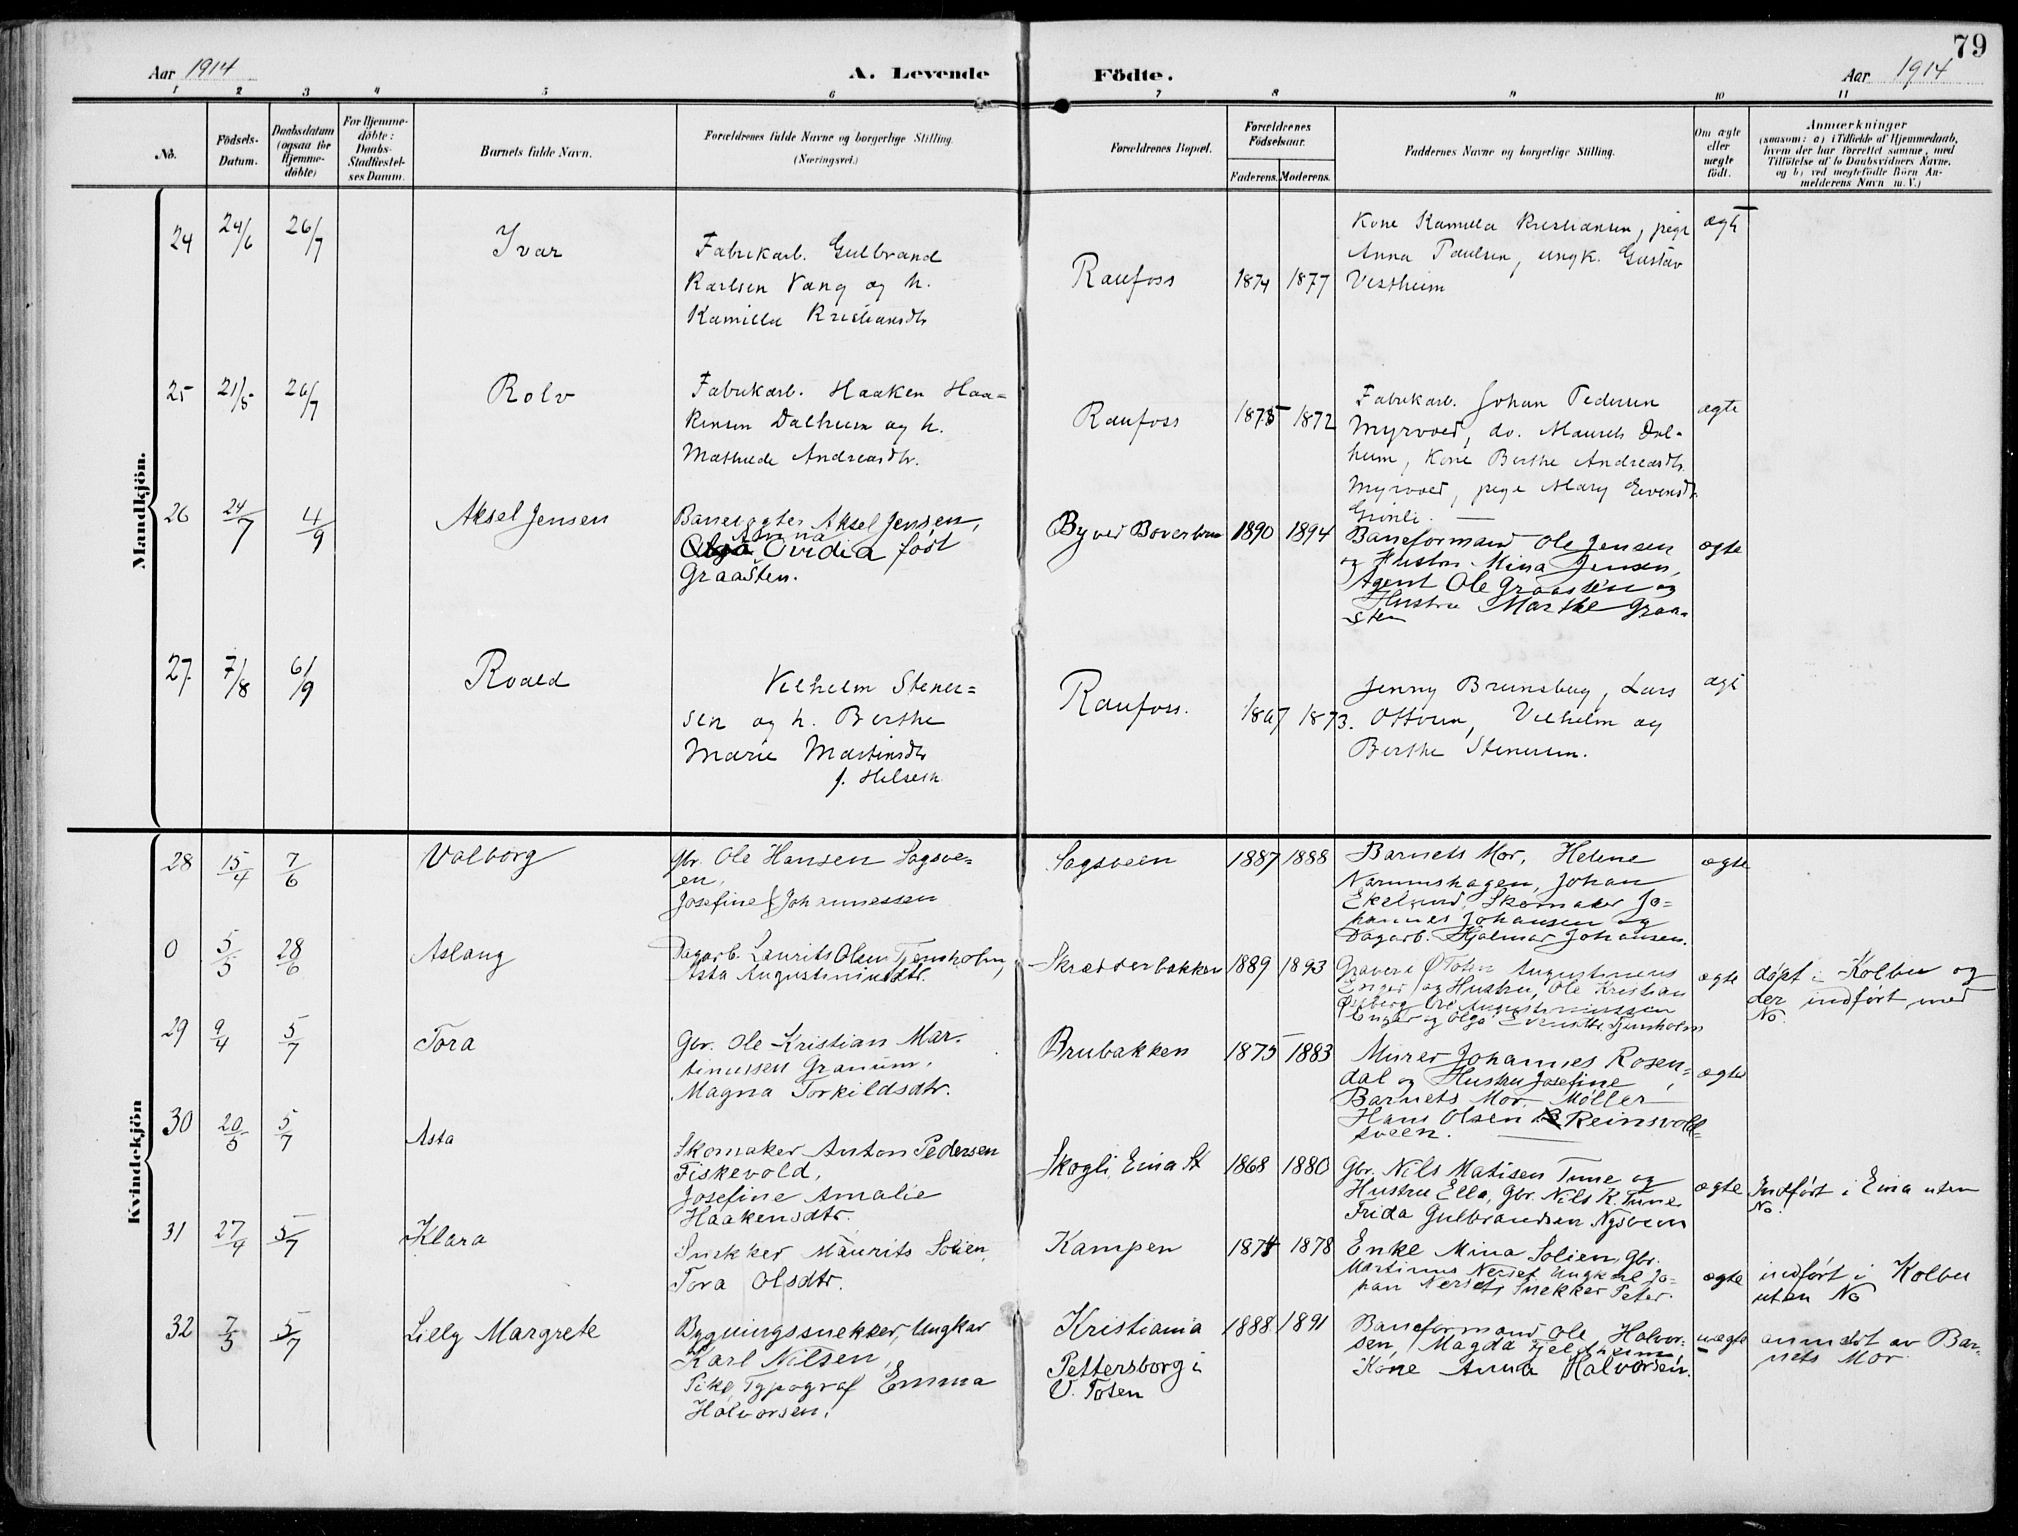 79
Aar 1914
A. Levende Födte.
Aar 1914
1 2 3 4 5 6 7 8 9 10 11
No.
Födsels-
Datum.
Daabsdatum
(ogsaa for
Hjemme-
döbte)
For Hjemme-
döbte:
Daabs-
Stadfæstel-
ses Datum.
Barnets fulde Navn.
Forældrenes fulde Navne og borgerlige Stilling.
(Næringsvei.)
Forældrenes Bopæl.
Forældrenes
Födselsaar.
Faderens. Moderens.
Faddernes Navne og borgerlige Stilling.
Om ægte
eller
uægte
födt.
Anmærkninger
(saasom: a) i Tilfælde af Hjemmedaab,
hvem der har forrettet samme, med
Tilföielse af to Daabsvidners Navne,
og b) ved uægtefödte Börn An-
melderens Navn m. V.)
Mandkjön.
24 24/6 26/7 Ivar
Fabrikarb. Gulbrand
Karlsen Vang og h.
Kamilla Kristiansdtr
Raufoss 1874 1877
Kone Kamilla Kristiansen, pige
Anna Paulsen, ungk. Gustav
Vestheim
ægte
25 21/5 26/7 Rolv
Fabrikarb. Haaken Haa=
kensen Dalheim og h.
Mathilde Andreasdtr.
Raufoss 1875 1872
Fabrikarb. Johan Pedersen
Myrvold, do. Maurits Dal=
heim, Kone Berthe Andreasdtr.
Myrvold, pige Mary Evensdtr.
Grinli.
ægte
26 24/7 4/9 Aksel Jensen
Banevogter Aksel Jensen,
Anna
Ovidia født
Graasten.
By ved Boverbru 1890 1894
Baneformand Ole Jensen
og Hustru Mina Jensen,
Agent Ole Graasten og
Hustru Marthe Graa=
sten
ægte
27. 7/8 6/9 Roald
Vilhelm Stener=
sen og h. Berthe
Marie Martinsdtr
f. Helseth
Raufoss. 1867 1873.
Jenny Brunsberg, Lars
Ottvin, Vilhelm og
Berthe Stenersen.
ægte
Kvindekjön
28 15/4 7/6 Valborg
Gbr. Ole Hansen Sagsve=
en,
Josefine Johannessen
Sagsveen 1887 1888
Barnets Mor, Helene
Narumshagen, Johan
Ekelund, Skomaker Jo=
hannes Johansen og
Dagarb. Hjalmar Johansen.
ægte
0 5/5 28/6 Aslaug
Dagarb. Laurits Olsen Tjernsholm,
Asta Augustinusdtr.
Skrædderbakken 1889 1893
Graver i Ø Toten Augustinus
Enger og Hustru, Ole Kristian
Østberg, Ole Augustinussen
Enger og Olga Evensdtr. Tjernsholm
ægte
døpt i Kolbu og
der indført med
No.
29 9/4 5/7 Tora
Gbr. Ole Kristian Mar=
tinussen Granum,
Magna Torkildsdtr.
Brubakken 1875 1883
Murer Johannes Rosen=
dal og Hustru Josefine,
Barnets Mor, Møller
Hans Olsen Reinsvold=
sveen.
ægte
30 20/5 5/7 Asta
Skomaker Anton Pedersen
Fiskevold,
Josefine Amalie
Haakensdtr.
Skogli, Eina St 1868 1880
Gbr. Nils Matisen Tune og
Hustru Ella, Gbr. Nils K. Tune
Frida Gulbrandsen Nysveen
ægte
Indført i Eina uten
No.
31 27/4 5/7 Klara
Snekker Maurits Solien,
Tora Olsdtr.
Kampen 1874 1878
Enke Mina Solien, Gbr.
Martinus Nerset, Ungkarl Jo=
han Nerset, Snekker Peter.
ægte
indført i Kolbu
uten No
32 7/5 5/7 Lilly Margrete
Bygningssnekker, Ungkar
Karl Nilsen,
Pike, Typograf Emma
Halvorsen,
Kristiania
Pettersborg i
V. Toten
1888 1891
Baneformand Ole Halvor=
sen, Magda Fjeldheim,
Kone Anna Halvorsen.
uægte
anmeldt av Bar=
nets Mor